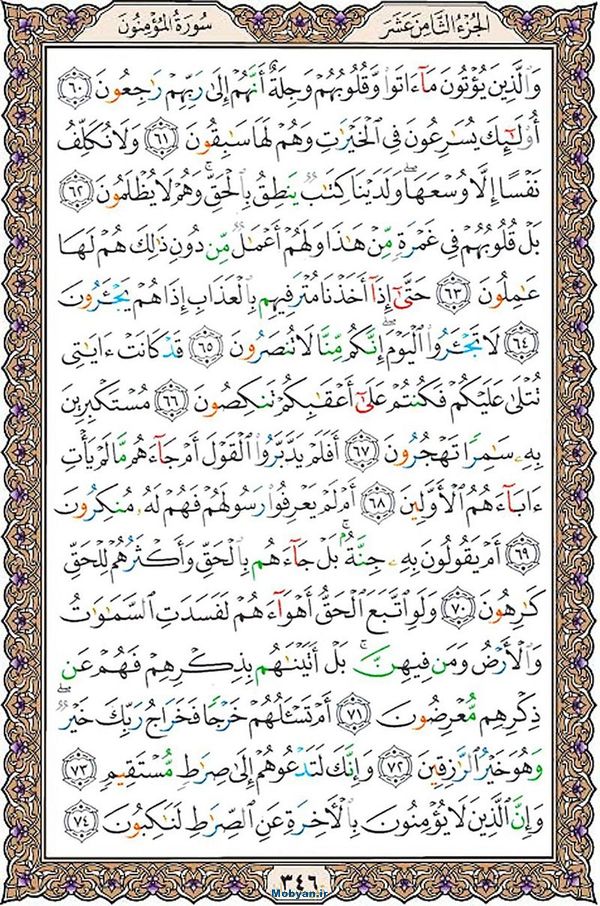 الجُزءُ الثَّامِنَ عَشَرَ
سُورَةُ المُؤْمِنُونَ
وَالَّذِينَ يُؤْتُونَ مَآ ءَاتَوا۟ وَّقُلُوبُهُمْ وَجِلَةٌ أَنَّهُمْ إِلَىٰ رَبِّهِمْ رَٰجِعُونَ ٦٠
أُو۟لَـٰٓئِكَ يُسَـٰرِعُونَ فِى الْخَيْرَٰتِ وَهُمْ لَهَا سَـٰبِقُونَ ٦١ وَلَا نُكَلِّفُ
نَفْسًا إِلَّا وُسْعَهَا ۖ وَلَدَيْنَا كِتَـٰبٌ يَنطِقُ بِالْحَقِّ ۚ وَهُمْ لَا يُظْلَمُونَ ٦٢
بَلْ قُلُوبُهُمْ فِى غَمْرَةٍ مِّنْ هَـٰذَا وَلَهُمْ أَعْمَـٰلٌ مِّن دُونِ ذَٰلِكَ هُمْ لَهَا
عَـٰمِلُونَ ٦٣ حَتَّىٰٓ إِذَآ أَخَذْنَا مُتْرَفِيهِم بِالْعَذَابِ إِذَا هُمْ يَجْـَٔرُونَ
٦٤ لَا تَجْـَٔرُوا۟ الْيَوْمَ ۖ إِنَّكُم مِّنَّا لَا تُنصَرُونَ ٦٥ قَدْ كَانَتْ ءَايَـٰتِى
تُتْلَىٰ عَلَيْكُمْ فَكُنتُمْ عَلَىٰٓ أَعْقَـٰبِكُمْ تَنكِصُونَ ٦٦ مُسْتَكْبِرِينَ
بِهِۦ سَـٰمِرًا تَهْجُرُونَ ٦٧ أَفَلَمْ يَدَّبَّرُوا۟ الْقَوْلَ أَمْ جَآءَهُم مَّا لَمْ يَأْتِ
ءَابَآءَهُمُ الْأَوَّلِينَ ٦٨ أَمْ لَمْ يَعْرِفُوا۟ رَسُولَهُمْ فَهُمْ لَهُۥ مُنكِرُونَ
٦٩ أَمْ يَقُولُونَ بِهِۦ جِنَّةٌۢ ۚ بَلْ جَآءَهُم بِالْحَقِّ وَأَكْثَرُهُمْ لِلْحَقِّ
كَـٰرِهُونَ ٧٠ وَلَوِ اتَّبَعَ الْحَقُّ أَهْوَآءَهُمْ لَفَسَدَتِ السَّمَـٰوَٰتُ
وَالْأَرْضُ وَمَن فِيهِنَّ ۚ بَلْ أَتَيْنَـٰهُم بِذِكْرِهِمْ فَهُمْ عَن
ذِكْرِهِم مُّعْرِضُونَ ٧١ أَمْ تَسْـَٔلُهُمْ خَرْجًا فَخَرَاجُ رَبِّكَ خَيْرٌ ۖ
وَهُوَ خَيْرُ الرَّٰزِقِينَ ٧٢ وَإِنَّكَ لَتَدْعُوهُمْ إِلَىٰ صِرَٰطٍ مُّسْتَقِيمٍ ٧٣
وَإِنَّ الَّذِينَ لَا يُؤْمِنُونَ بِالْـَٔاخِرَةِ عَنِ الصِّرَٰطِ لَنَـٰكِبُونَ ٧٤
٣٤٦
Mobyan.ir